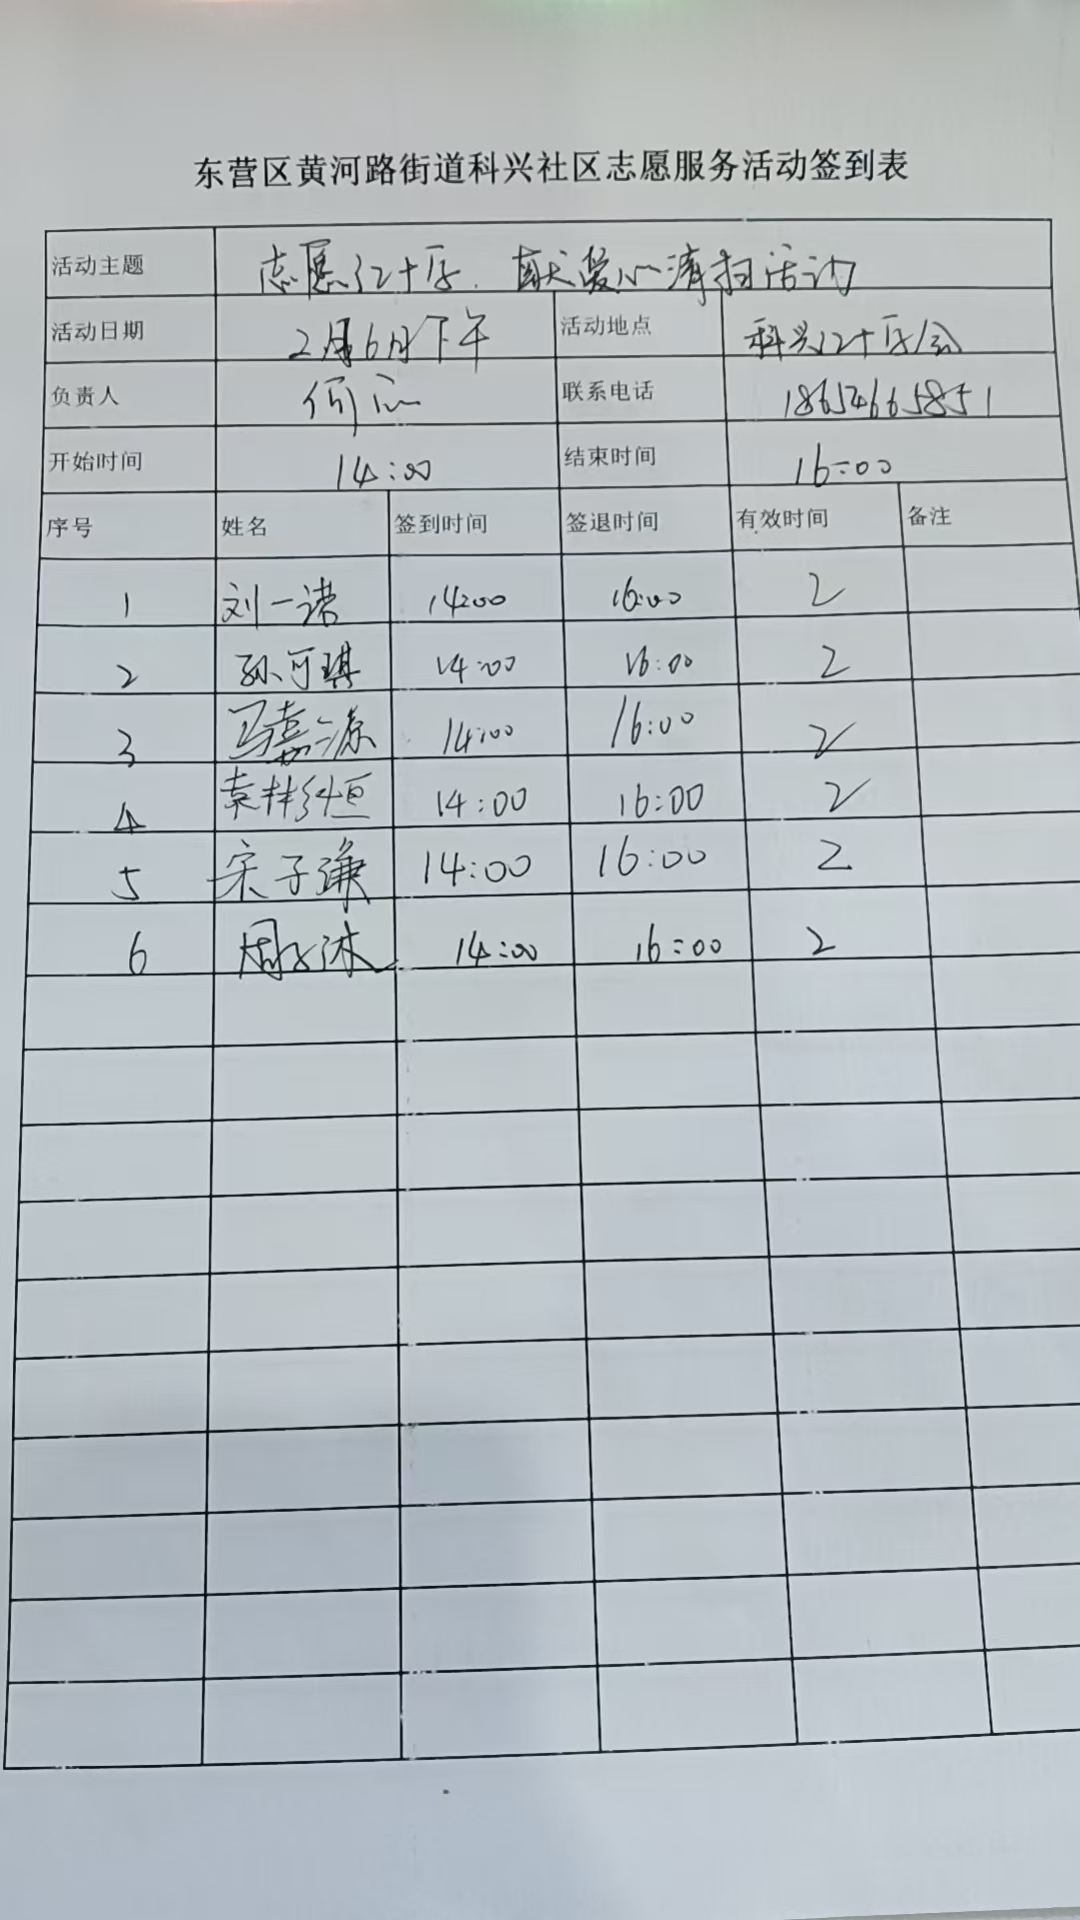 东营区黄河路街道科兴社区志愿服务活动签到表
活动主题 志愿红十字.献爱心清扫活动
活动日期 2月6日下午 活动地点 科兴红十字会
负责人 何 联系电话 18654665851
开始时间 14:00 结束时间 16:00
序号 姓名 签到时间 签退时间 有效时间 备注
1 刘一诺 14:00 16:00 2
2 孙可琪 14:00 16:00 2
3 马嘉源 14:00 16:00 2
4 袁梓恒 14:00 16:00 2
5 宋子谦 14:00 16:00 2
6 周沐 14:00 16:00 2